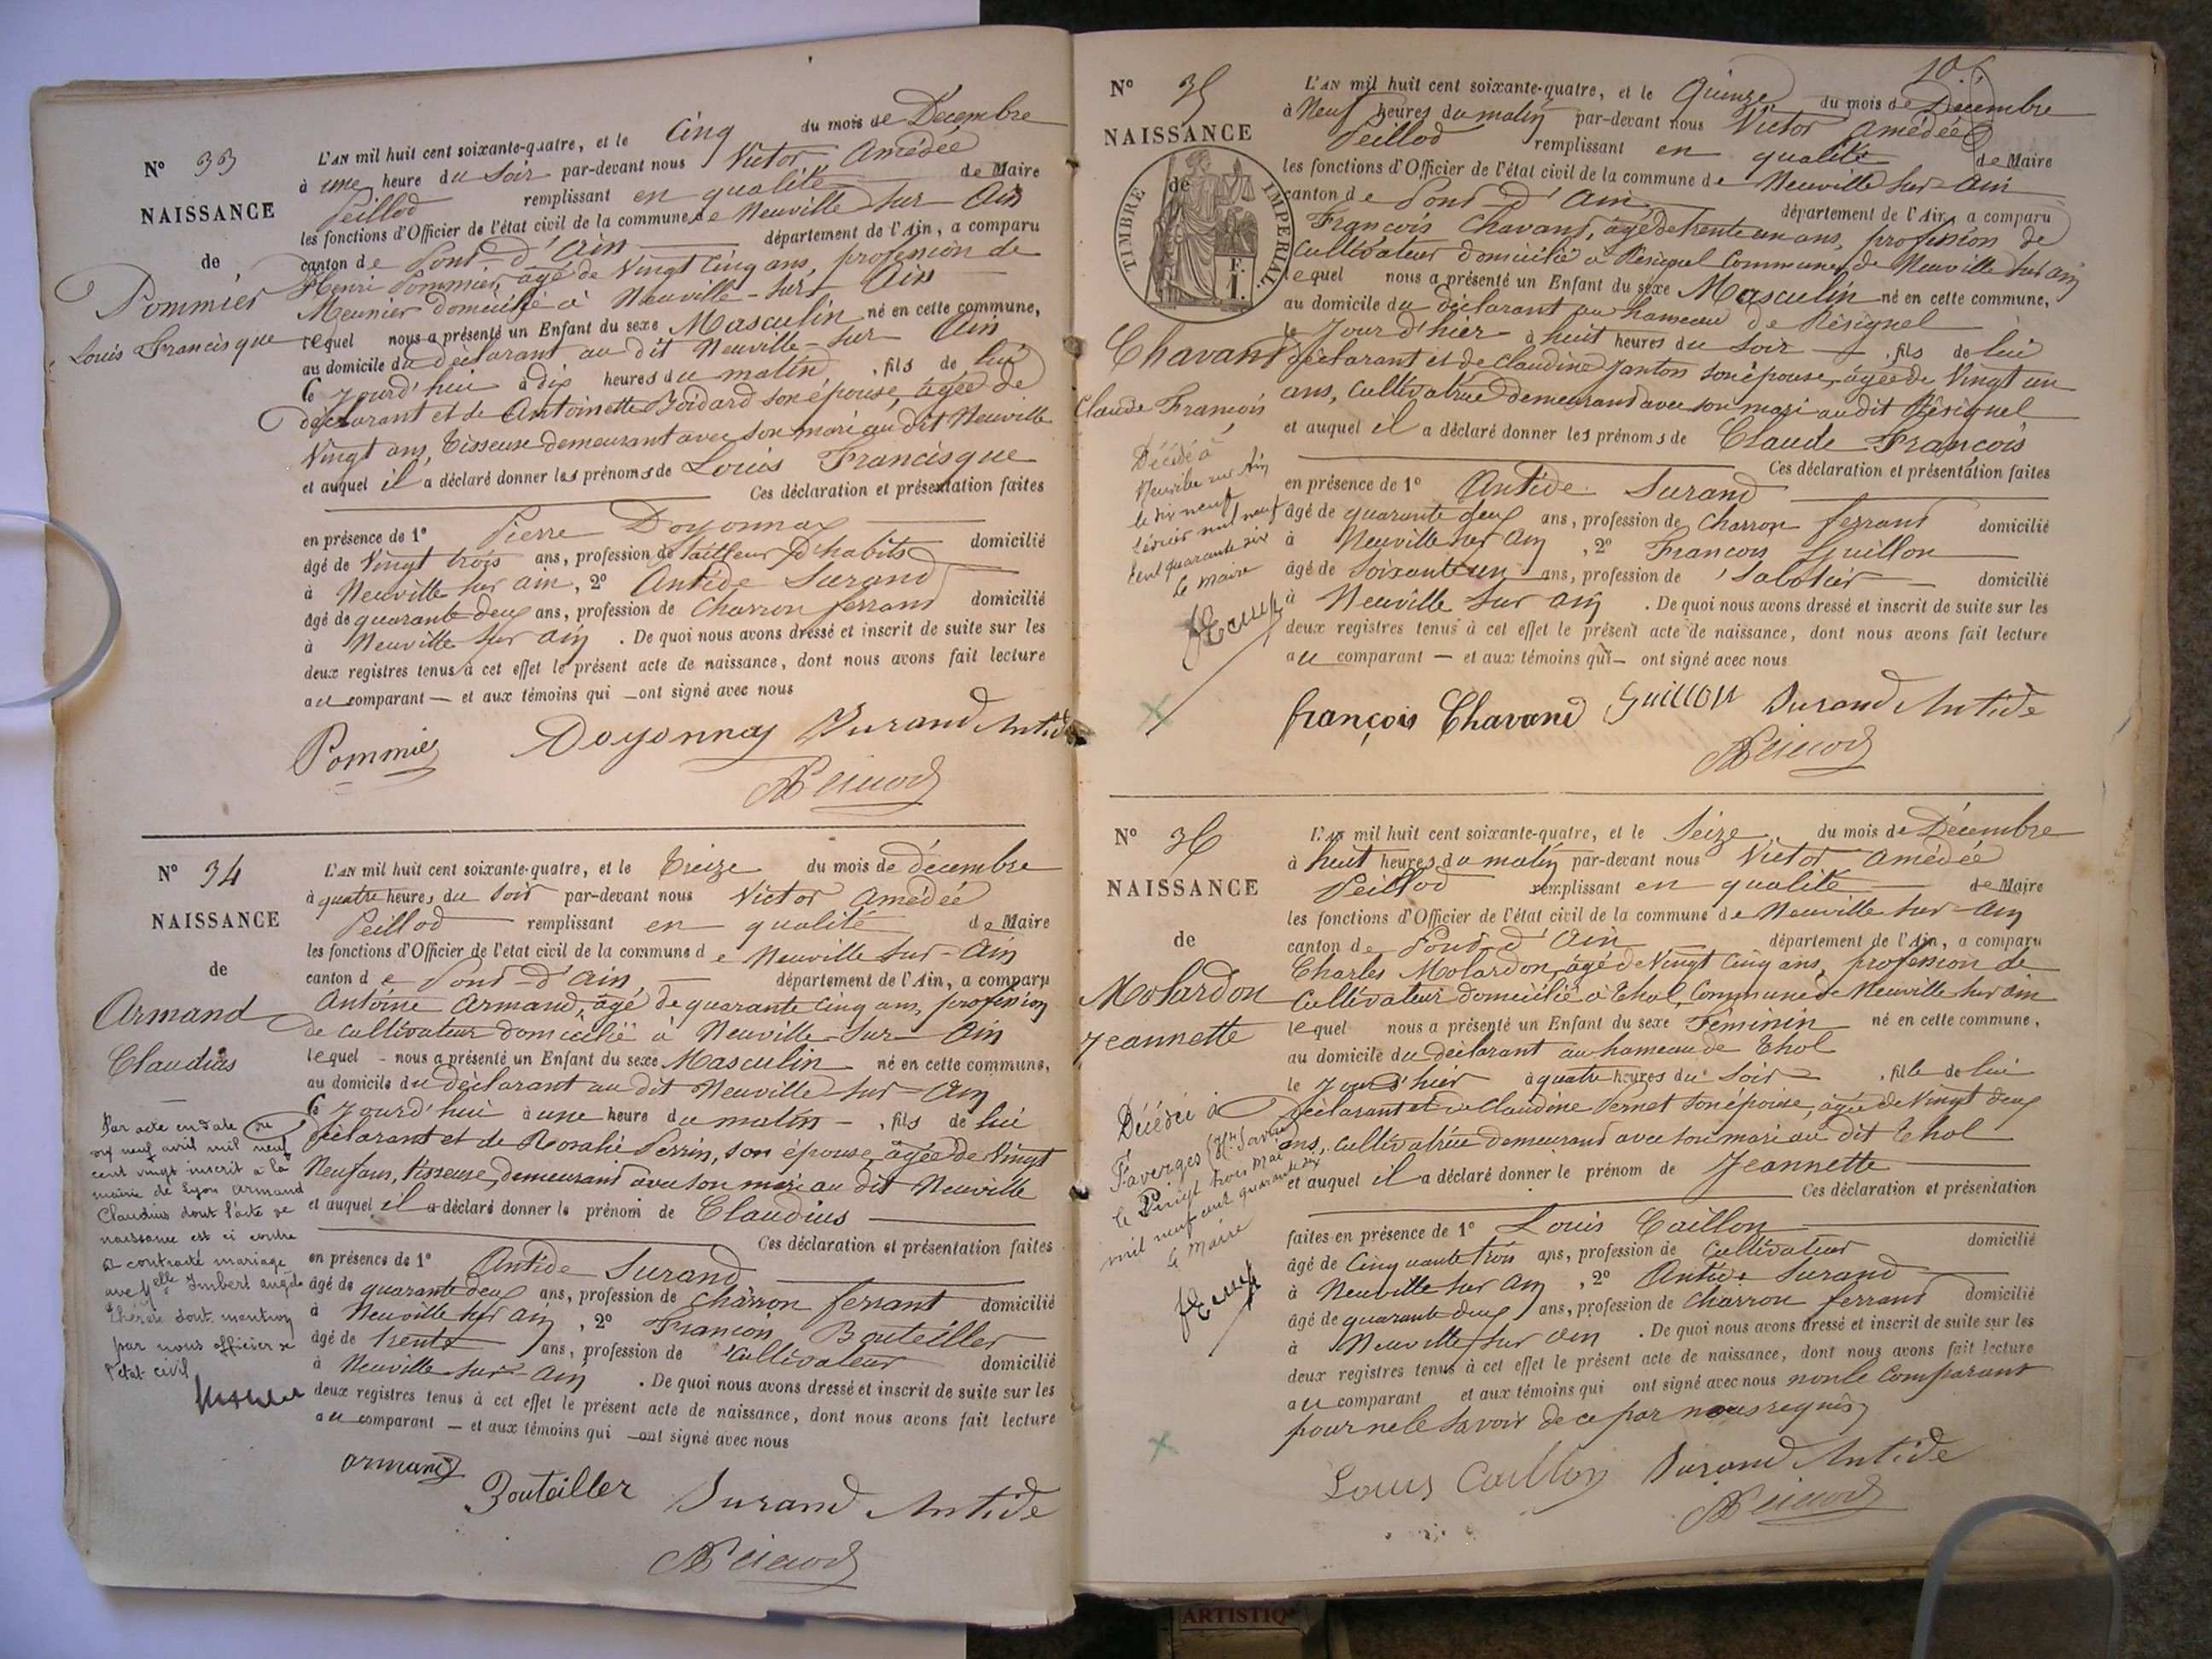 N° 33
NAISSANCE
de
Pommier
Louis Francisque
L'AN mil huit cent soixante-quatre, et le Cinq du mois de Décembre
à une heure du Soir par-devant nous Victor Amédée
Peillod remplissant en qualité de Maire
les fonctions d'Officier de l'état civil de la commune de Neuville sur Ain
canton de Pont-d'Ain département de l'Ain, a comparu
Henri Pommier, âgé de Vingt Cinq ans, profession de
Meunier domicilié à Neuville-sur-Ain
lequel nous a présenté un Enfant du sexe Masculin né en cette commune,
au domicile du déclarant au dit Neuville-sur Ain
Ce Jourd'hui à dix heures du matin, fils de lui
déclarant et de Antoinette Boidard son épouse, âgée de
Vingt ans, Tisseuse demeurant avec son mari au dit Neuville
et auquel il a déclaré donner les prénoms de Louis Francisque
Ces déclaration et présentation faites
en présence de 1° Pierre Doyonnax
âgé de Vingt trois ans, profession de tailleur d'habits domicilié
à Neuville sur ain, 2° Antide Durand
âgé de quarante deux ans, profession de Charron ferrand domicilié
à Neuville sur ain. De quoi nous avons dressé et inscrit de suite sur les
deux registres tenus à cet effet le présent acte de naissance, dont nous avons fait lecture
au comparant — et aux témoins qui — ont signé avec nous
Pommier Doyonnax Durand Antide
N° 34
NAISSANCE
de
Armand
Claudius
L'AN mil huit cent soixante-quatre, et le Treize du mois de décembre
à quatre heures du Soir par-devant nous Victor Amédée
Peillod remplissant en qualité de Maire
les fonctions d'Officier de l'état civil de la commune de Neuville sur-Ain
canton de Pont-d'Ain département de l'Ain, a comparu
Antoine Armand, âgé de quarante Cinq ans, profession
de cultivateur domicilié à Neuville-Sur-Ain
lequel - nous a présenté un Enfant du sexe Masculin né en cette commune,
au domicile du déclarant au dit Neuville sur-Ain
Ce Jourd'hui à une heure du matin -, fils de lui
déclarant et de Rosalie Perrin, son épouse, âgée de Vingt
Neuf ans, tisseuse, demeurant avec son mari au dit Neuville
et auquel il a déclaré donner le prénom de Claudius
Ces déclaration et présentation faites
en présence de 1° Antide Durand
âgé de quarante deux ans, profession de charron ferrant domicilié
à Neuville sur ain, 2° François Bouteiller
âgé de trente ans, profession de Cultivateur domicilié
à Neuville sur-ain. De quoi nous avons dressé et inscrit de suite sur les
deux registres tenus à cet effet le présent acte de naissance, dont nous avons fait lecture
au comparant — et aux témoins qui — ont signé avec nous
Par acte en date du
neuf avril mil neuf
cent vingt inscrit à la
mairie de Lyon Armand
Claudius dont l'acte de
naissance est ci contre
a contracté mariage
avec Melle Imbert Angèle
Thérèse dont mention
par nous officier de
l'état civil
armand Bouteiller Durand Antide
105
N° 35
NAISSANCE
de
TIMBRE IMPERIAL
F.
1.
Chavand
Claude François
L'AN mil huit cent soixante-quatre, et le Quinze du mois de Décembre
à Neuf heures du matin par-devant nous Victor Amédée
Peillod remplissant en qualité de Maire
les fonctions d'Officier de l'état civil de la commune de Neuville sur-Ain
canton de Pont-d'Ain département de l'Ain, a comparu
François Chavand, âgé de trente un ans, profession de
Cultivateur domicilié à Résignel Commune de Neuville sur ain
lequel nous a présenté un Enfant du sexe Masculin né en cette commune,
au domicile du déclarant au hameau de Résignel
le Jour d'hier à huit heures du Soir —, fils de lui
déclarant et de Claudine Janton son épouse, âgée de Vingt un
ans, Cultivatrice demeurand avec son mari au dit Résignel
et auquel il a déclaré donner les prénoms de Claude François
Ces déclaration et présentation faites
en présence de 1° Antide Durand
âgé de quarante deux ans, profession de Charron ferrand domicilié
à Neuville sur Ain, 2° François Guillon
âgé de Soixante un ans, profession de Sabotier domicilié
à Neuville sur ain. De quoi nous avons dressé et inscrit de suite sur les
deux registres tenus à cet effet le présent acte de naissance, dont nous avons fait lecture
au comparant — et aux témoins qui — ont signé avec nous
Décédé à
Neuville sur Ain
le dix neuf
février mil neuf
cent quarante six
le maire
françois Chavand Guillon Durand Antide
N° 36
NAISSANCE
de
Molardon
Jeannette
L'AN mil huit cent soixante-quatre, et le Seize du mois de Décembre
à huit heures du matin par-devant nous Victor Amédée
Peillod remplissant en qualité de Maire
les fonctions d'Officier de l'état civil de la commune de Neuville sur-Ain
canton de Pont-d'Ain département de l'Ain, a comparu
Charles Molardon, âgé de Vingt Cinq ans, profession de
Cultivateur domicilié à Thol, Commune de Neuville sur ain
lequel nous a présenté un Enfant du sexe Féminin né en cette commune,
au domicile du déclarant au hameau de Thol
le Jour d'hier à quatre heures du Soir, fille de lui
déclarant et de Claudine Vernet son épouse, âgée de Vingt deux
ans, cultivatrice demeurand avec son mari au dit Thol
et auquel il a déclaré donner le prénom de Jeannette
Ces déclaration et présentation
faites en présence de 1° Louis Caillon
âgé de Cinquante trois ans, profession de Cultivateur domicilié
à Neuville sur Ain, 2° Antide Durand
âgé de quarante deux ans, profession de Charron ferrand domicilié
à Neuville sur Ain. De quoi nous avons dressé et inscrit de suite sur les
deux registres tenus à cet effet le présent acte de naissance, dont nous avons fait lecture
au comparant et aux témoins qui ont signé avec nous non le Comparant
pour ne le Savoir de ce par nous requis
Décédée à
Faverges (Hte Savoie)
le Vingt trois mai
mil neuf cent quarante six
le Maire
Louis Caillon Durand Antide
ARTISTIQ